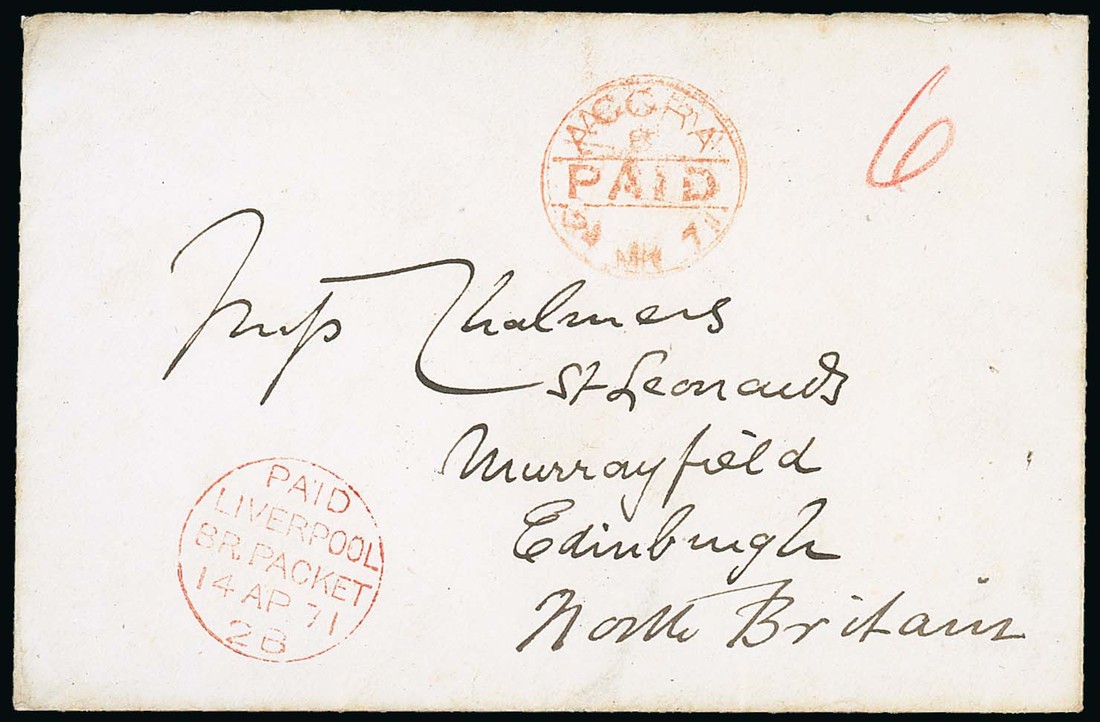 ACCRA
PAID
MR 71
6
Miss Chalmers
St Leonards
Murrayfield
Edinburgh
North Britain
PAID
LIVERPOOL
BR. PACKET
14 AP 71
2B